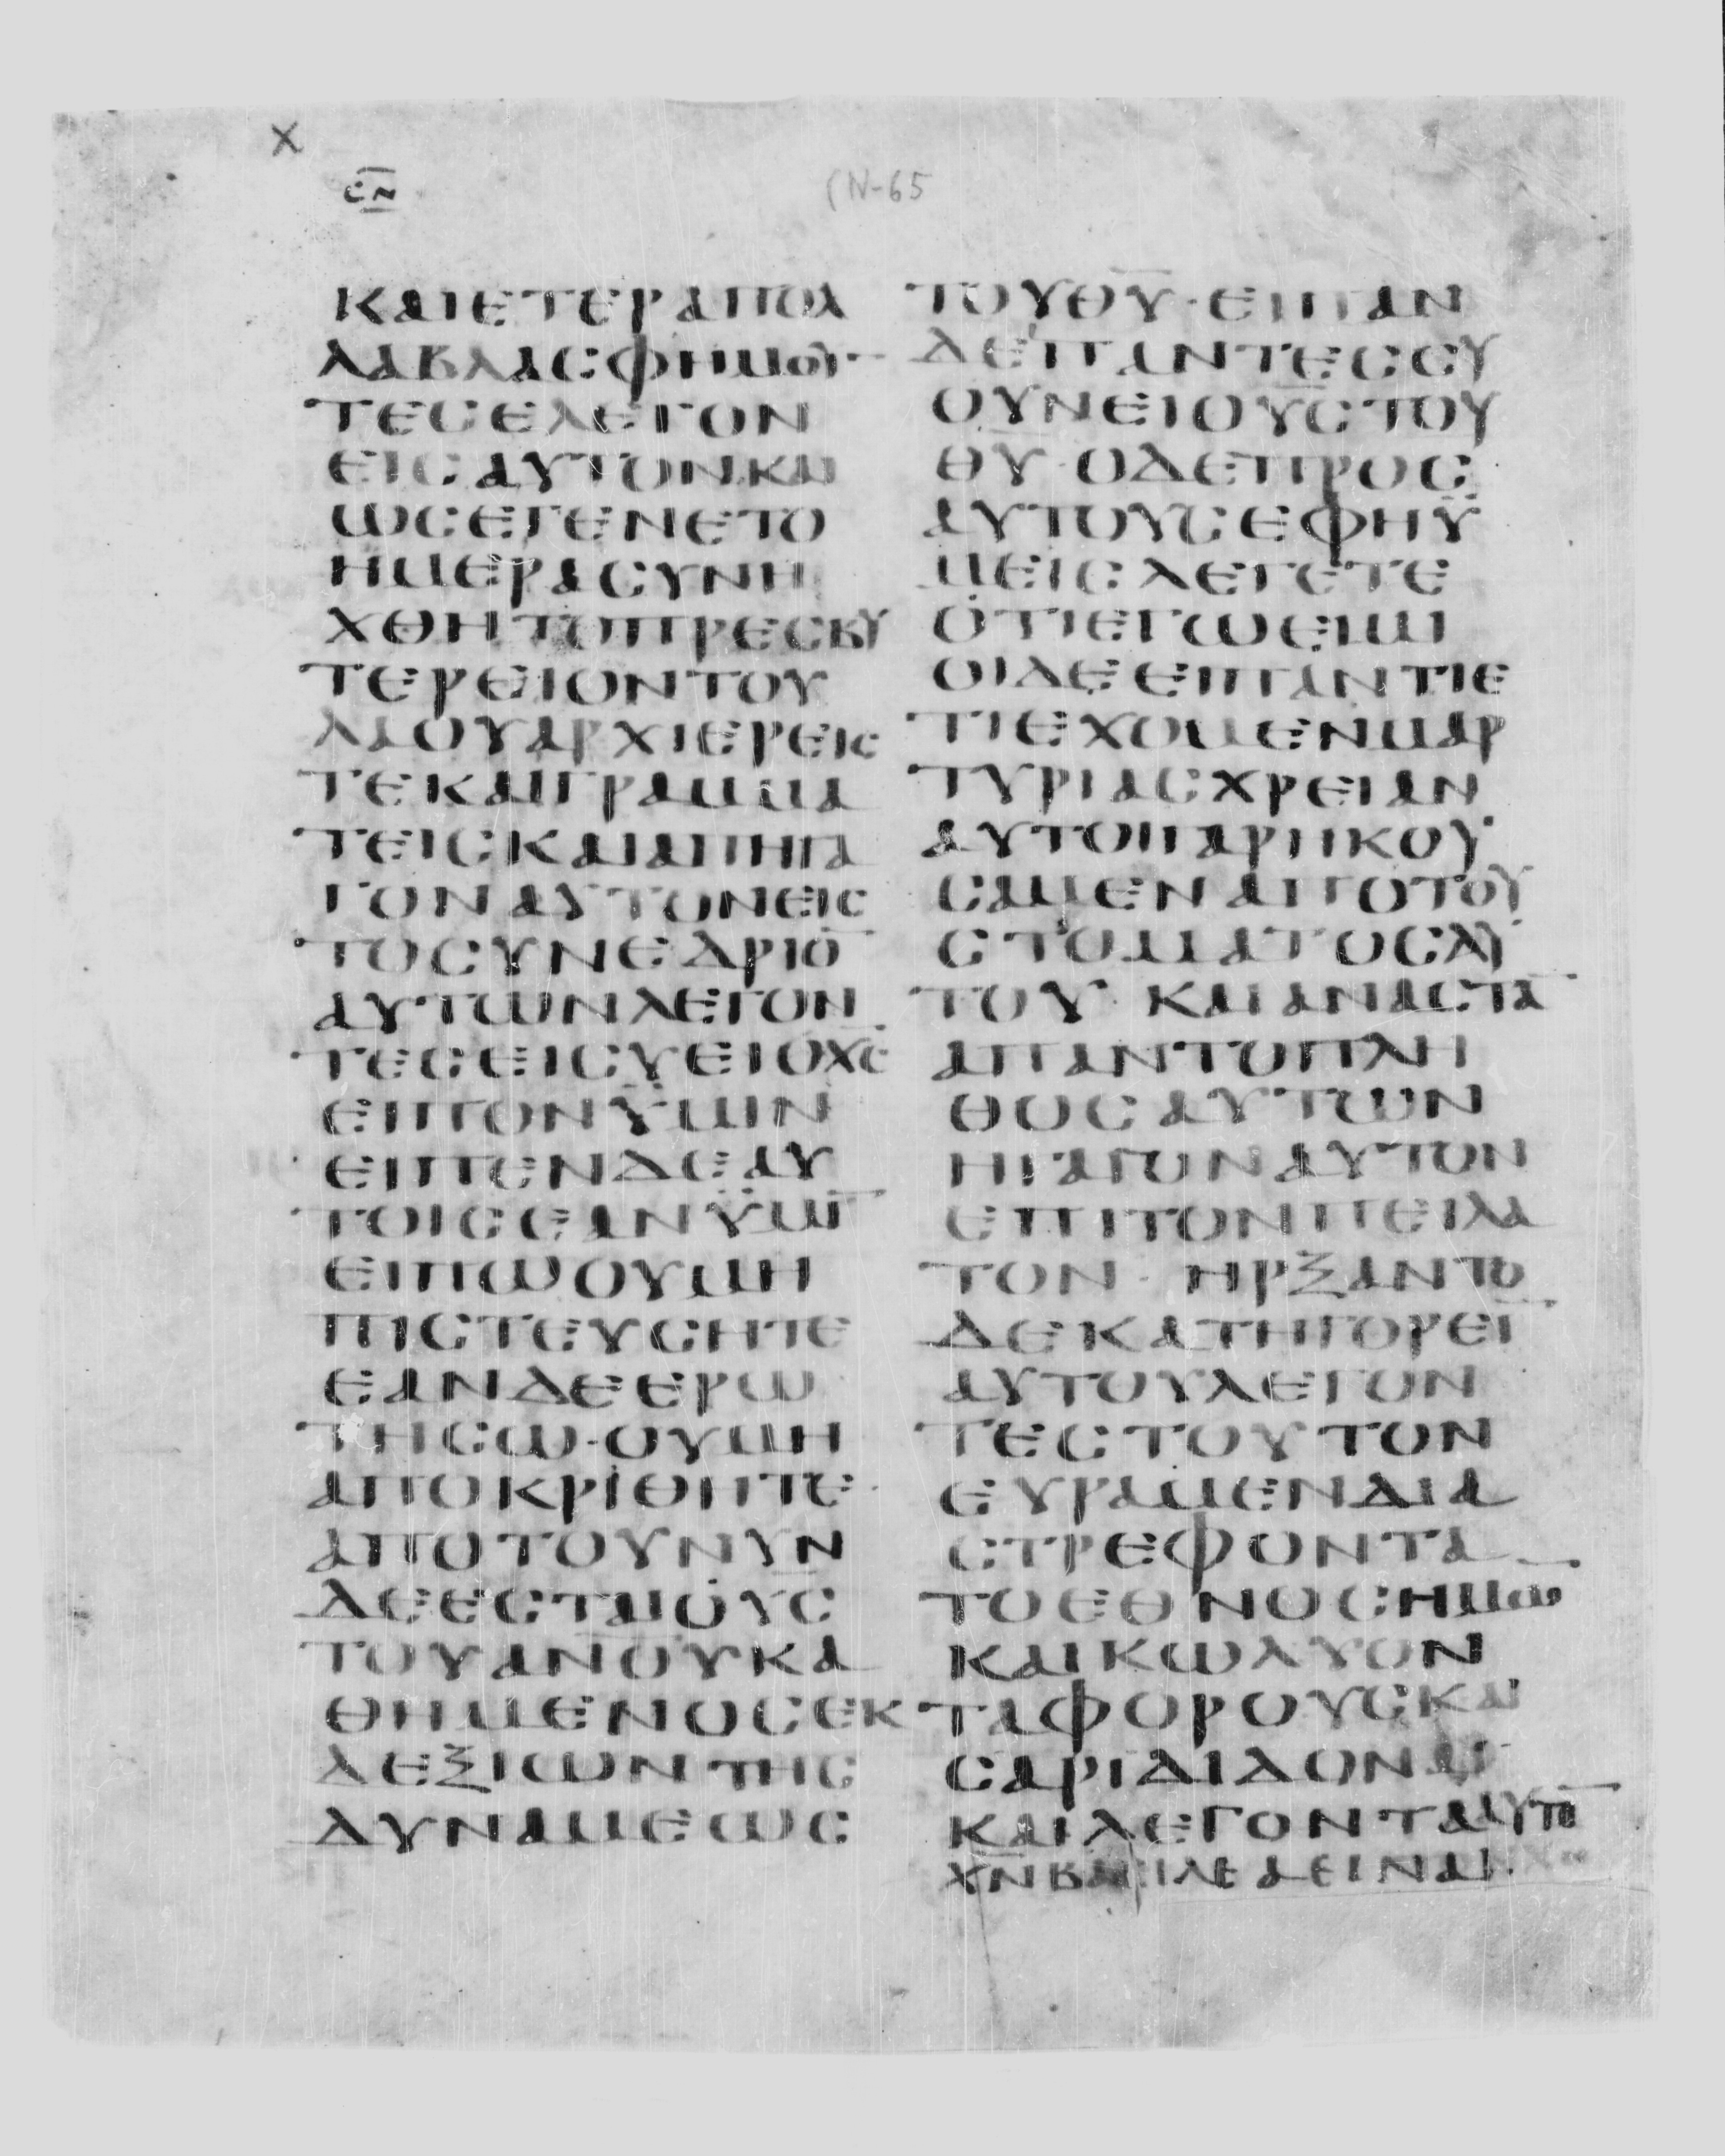 X
ⲤⲚ
(N-65
ΚΑΙΕΤΕΡΑΠΟΛ
ΛΑΒΛΑСΦΗΜΟΥ
ΤΕСΕΛΕΓΟΝ
ΕΙСΑΥΤΟΝΚΑΙ
ΩСΕΓΕΝΕΤΟ
ΗΜΕΡΑСΥΝΗ
ΧΘΗΤΟΠΡΕСΒΥ
ΤΕΡΕΙΟΝΤΟΥ
ΛΑΟΥΑΡΧΙΕΡΕΙС
ΤΕΚΑΙΓΡΑΜΜΑ
ΤΕΙСΚΑΙΑΠΗΓΑ
ΓΟΝΑΥΤΟΝΕΙС
ΤΟСΥΝΕΔΡΙΟ̅
ΑΥΤΩΝΛΕΓΟΝ
ΤΕСΕΙСΥΕΙΟΧ̅С̅
ΕΙΠΟΝΫΜΙΝ
ΕΙΠΕΝΔΕΑΥ
ΤΟΙСΕΑΝΫΜΙ̅
ΕΙΠΩΟΥΜΗ
ΠΙСΤΕΥСΗΤΕ
ΕΑΝΔΕΕΡΩ
ΤΗСΩ·ΟΥΜΗ
ΑΠΟΚΡΙΘΗΤΕ·
ΑΠΟΤΟΥΝΥΝ
ΔΕΕСΤΑΙΟΥ̅С̅
ΤΟΥΑ̅Ν̅Ο̅Υ̅ΚΑ
ΘΗΜΕΝΟСΕΚ
ΔΕΞΙΩΝΤΗС
ΔΥΝΑΜΕΩС
ΤΟΥΘ̅Υ̅·ΕΙΠΑΝ
ΔΕΠΑΝΤΕССΥ
ΟΥΝΕΙΟΥ̅С̅ΤΟΥ
Θ̅Υ̅·ΟΔΕΠΡΟС
ΑΥΤΟΥСΕΦΗΫ
ΜΕΙСΛΕΓΕΤΕ
ΟΤΙΕΓΩΕΙΜΙ
ΟΙΔΕΕΙΠΑΝΤΙΕ
ΤΙΕΧΟΜΕΝΜΑΡ
ΤΥΡΙΑСΧΡΕΙΑΝ
ΑΥΤΟΙΓΑΡΗΚΟΥ
СΑΜΕΝΑΠΟΤΟΥ
СΤΟΜΑΤΟСΑΥ
ΤΟΥ·ΚΑΙΑΝΑСΤΑ̅
ΑΠΑΝΤΟΠΛΗ
ΘΟСΑΥΤΩΝ
ΗΓΑΓΟΝΑΥΤΟΝ
ΕΠΙΤΟΝΠΕΙΛΑ
ΤΟΝ·ΗΡΞΑΝΤΟ
ΔΕΚΑΤΗΓΟΡΕΙ̅
ΑΥΤΟΥΛΕΓΟΝ
ΤΕСΤΟΥΤΟΝ
ΕΥΡΑΜΕΝΔΙΑ
СΤΡΕΦΟΝΤΑ
ΤΟΕΘΝΟСΗΜΩ̅
ΚΑΙΚΩΛΥΟΝ
ΤΑΦΟΡΟΥСΚΑΙ
СΑΡΙΔΙΔΟΝΑΙ
ΚΑΙΛΕΓΟΝΤΑΑΥΤΟ̅
Χ̅Ν̅ΒΑСΙΛΕΑΕΙΝΑΙ·